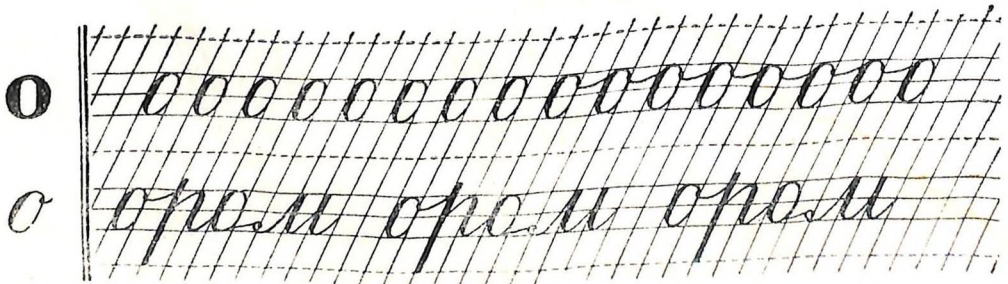 о о о о о о о о о оооооооо
о ором ором ором